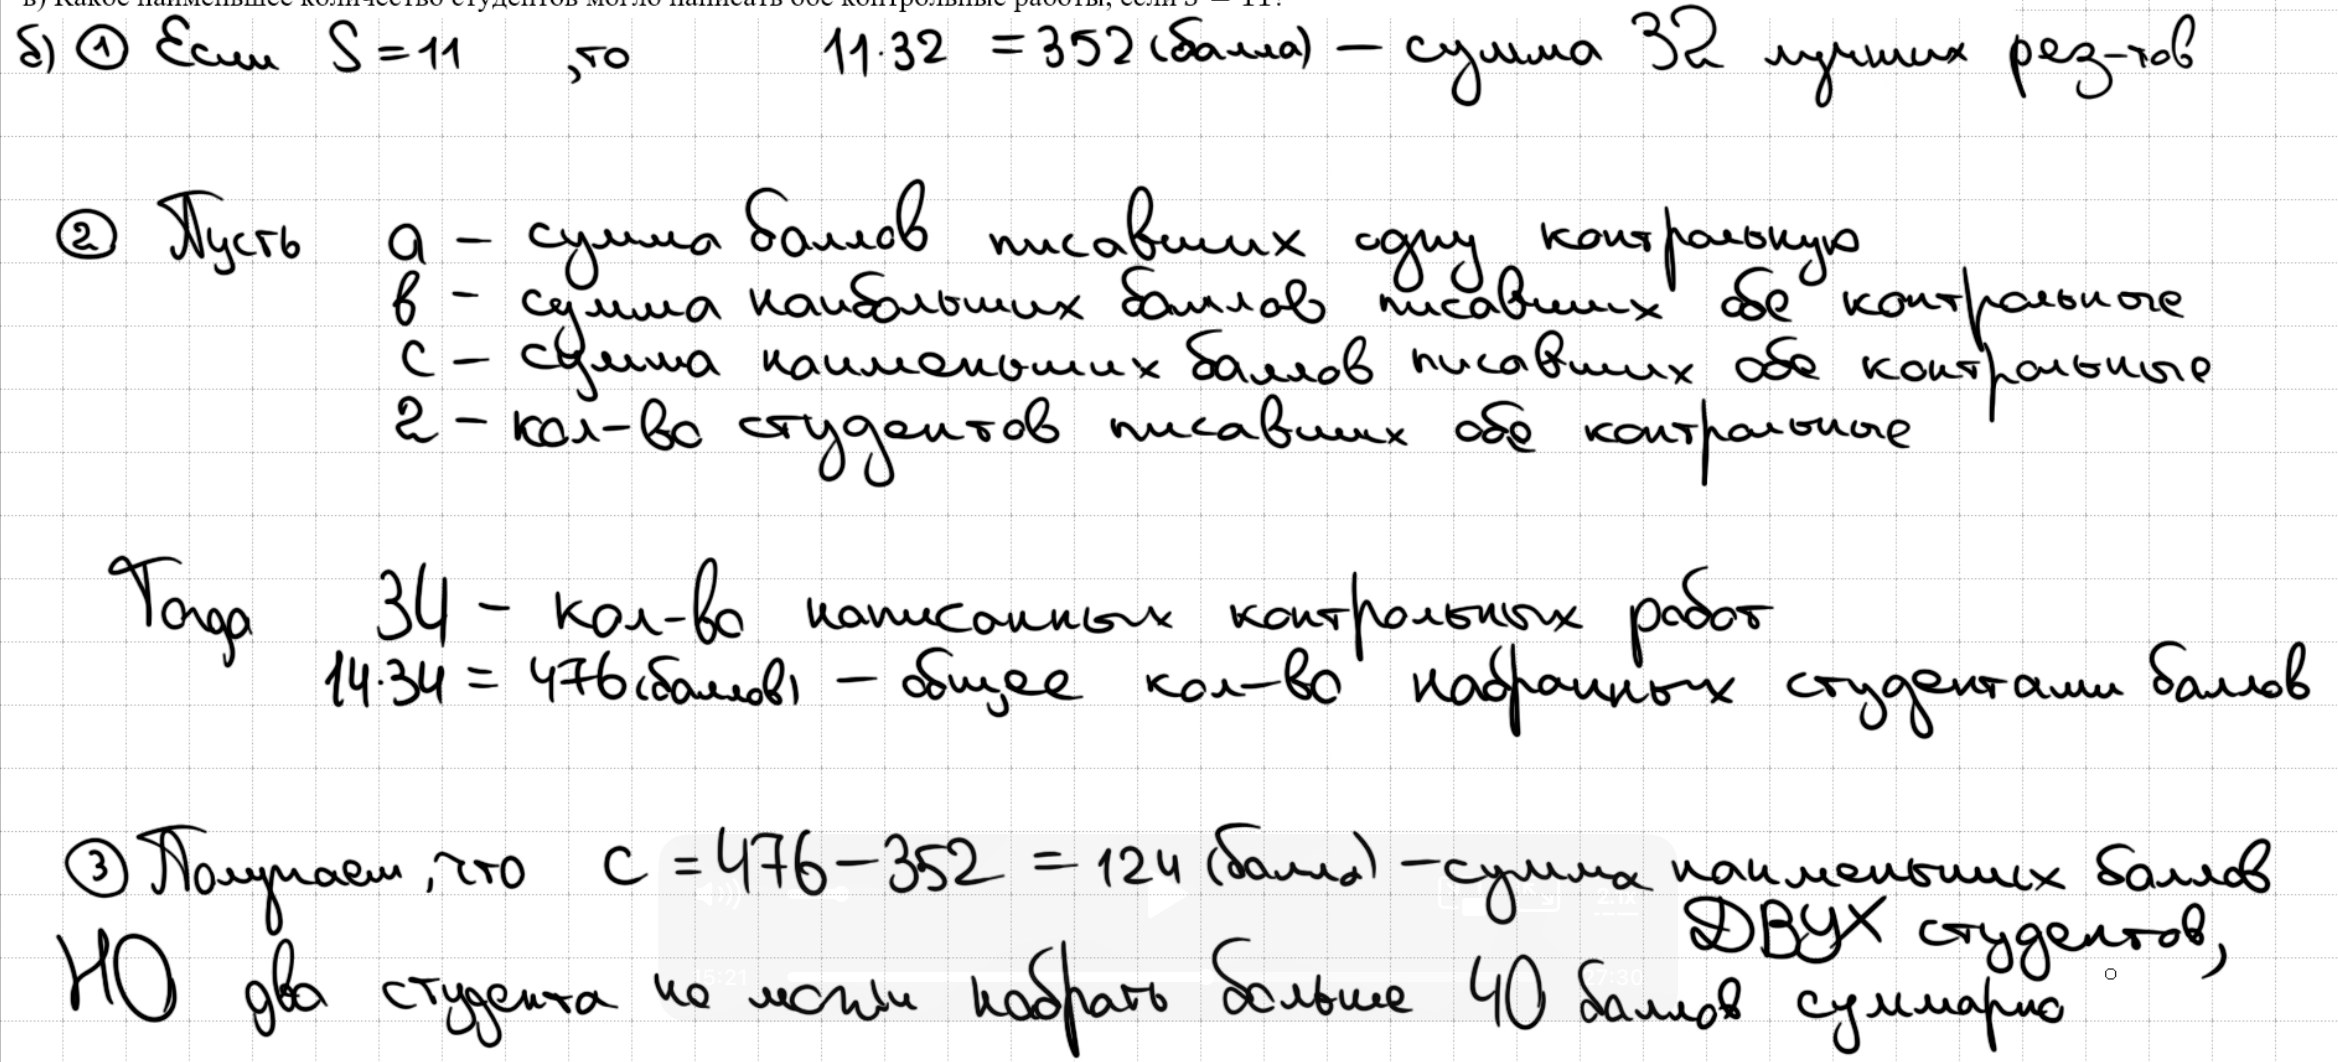 в) Какое наименьшее количество студентов могло написать обе контрольные работы, если S = 11?
б) ① Если S = 11 , то 11·32 = 352 (балла) – сумма 32 лучших рез-тов
② Пусть а – сумма баллов писавших одну контрольную
в – сумма наибольших баллов писавших обе контрольные
с – сумма наименьших баллов писавших обе контрольные
2 – кол-во студентов писавших обе контрольные
Тогда 34 – кол-во написанных контрольных работ
14·34 = 476 (баллов) – общее кол-во набранных студентами баллов
③ Получаем, что с = 476 – 352 = 124 (балла) – сумма наименьших баллов
ДВУХ студентов,
НО два студента не могли набрать больше 40 баллов суммарно